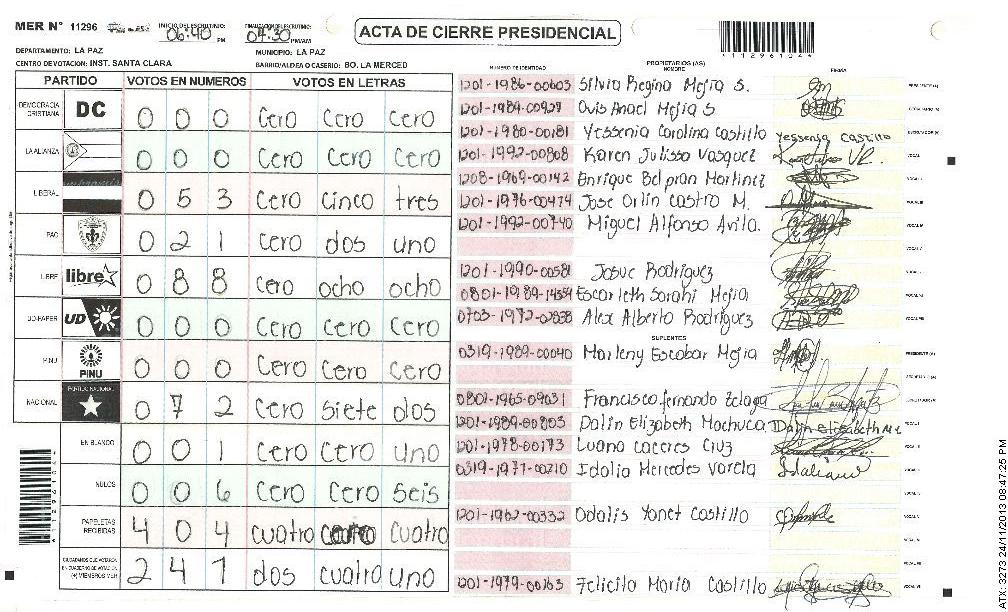 MER N° 11296
INICIO DEL ESCRUTINIO: 06:40 PM
FINALIZACION ESCRUTINIO: 04:30 PM/AM
ACTA DE CIERRE PRESIDENCIAL
A112961044
DEPARTAMENTO: LA PAZ
MUNICIPIO: LA PAZ
CENTRO DE VOTACION: INST. SANTA CLARA
BARRIO/ALDEA O CASERIO: BO. LA MERCED
PARTIDO VOTOS EN NUMEROS VOTOS EN LETRAS
DEMOCRACIA CRISTIANA DC 0 0 0 cero cero cero
LA ALIANZA 0 0 0 cero cero cero
LIBERAL 0 5 3 cero cinco tres
PAC 0 2 1 cero dos uno
LIBRE libre 0 8 8 cero ocho ocho
UD-FAPER UD 0 0 0 cero cero cero
PINU PINU 0 0 0 cero cero cero
NACIONAL PARTIDO NACIONAL 0 7 2 cero siete dos
EN BLANCO 0 0 1 cero cero uno
NULOS 0 0 6 cero cero seis
PAPELETAS RECIBIDAS 4 0 4 cuatro cero cuatro
CIUDADANOS QUE VOTARON EN CUADERNO DE VOTACION (+) MIEMBROS MER 2 4 1 dos cuatro uno
PROPIETARIOS (AS)
NUMERO DE IDENTIDAD NOMBRE FIRMA
1201-1986-00603 Silvia Regina Mejia S. PRESIDENTE (A)
1201-1984-00929 Ovis Anael Mejia S SECRETARIO (A)
1201-1980-00181 Yessenia Carolina Castillo Yessenia Castillo ESCRUTADOR (A)
1201-1992-00808 Karen Julissa Vasquez VOCAL I
1208-1969-00142 Enrique Beltran Martinez VOCAL II
1201-1976-00474 Jose Orlin Castro M. VOCAL III
1201-1992-00740 Miguel Alfonso Avila. VOCAL IV
VOCAL V
1201-1990-00581 Josue Rodriguez
0801-1989-14354 Escarleth Sarahi Mejia
0703-1972-02838 Alex Alberto Rodriguez
SUPLENTES
0319-1989-00040 Marleny Escobar Mejia PRESIDENTE (A)
SECRETARIO (A)
0801-1965-09031 Francisco fernando Zelaya ESCRUTADOR (A)
1201-1989-00803 Dalin Elizabeth Machuca Dalin Elisabeth M.
1201-1978-00173 Luana Caceres Cruz
0319-1977-00210 Idalia Mercedes Varela Idalia
1201-1962-00332 Odalis Yanet Castillo
1201-1979-00163 Felicita Maria Castillo
ATX-3273 24/11/2013 08:47:25 PM